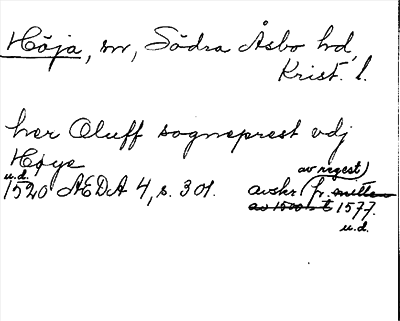 Höja, sn, Södra Åsbo hd,
Krist. l.
her Oluff sogneprest vdj
Høye
u.d.
1520 AEDA 4, s. 301.
av regest)
avskr. (fr. mitten
av 1500-t 1577.
u.d.